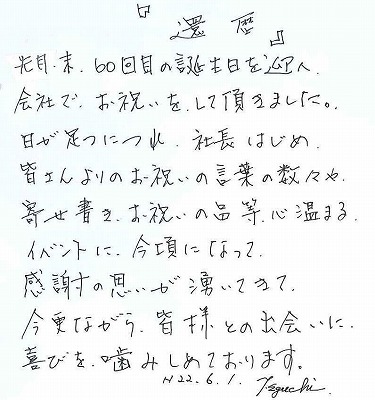 『還暦』
先月末、60回目の誕生日を迎へ
会社で、お祝いを、して頂きました。
日が足つにつれ、社長はじめ、
皆さんよりのお祝いの言葉の数々や、
寄せ書き、お祝いの品等、心温まる、
イベントに、今頃になって、
感謝の思いが湧いてきて、
今更ながら、皆様との出会いに、
喜びを、噛みしめております。
H22.6.1.